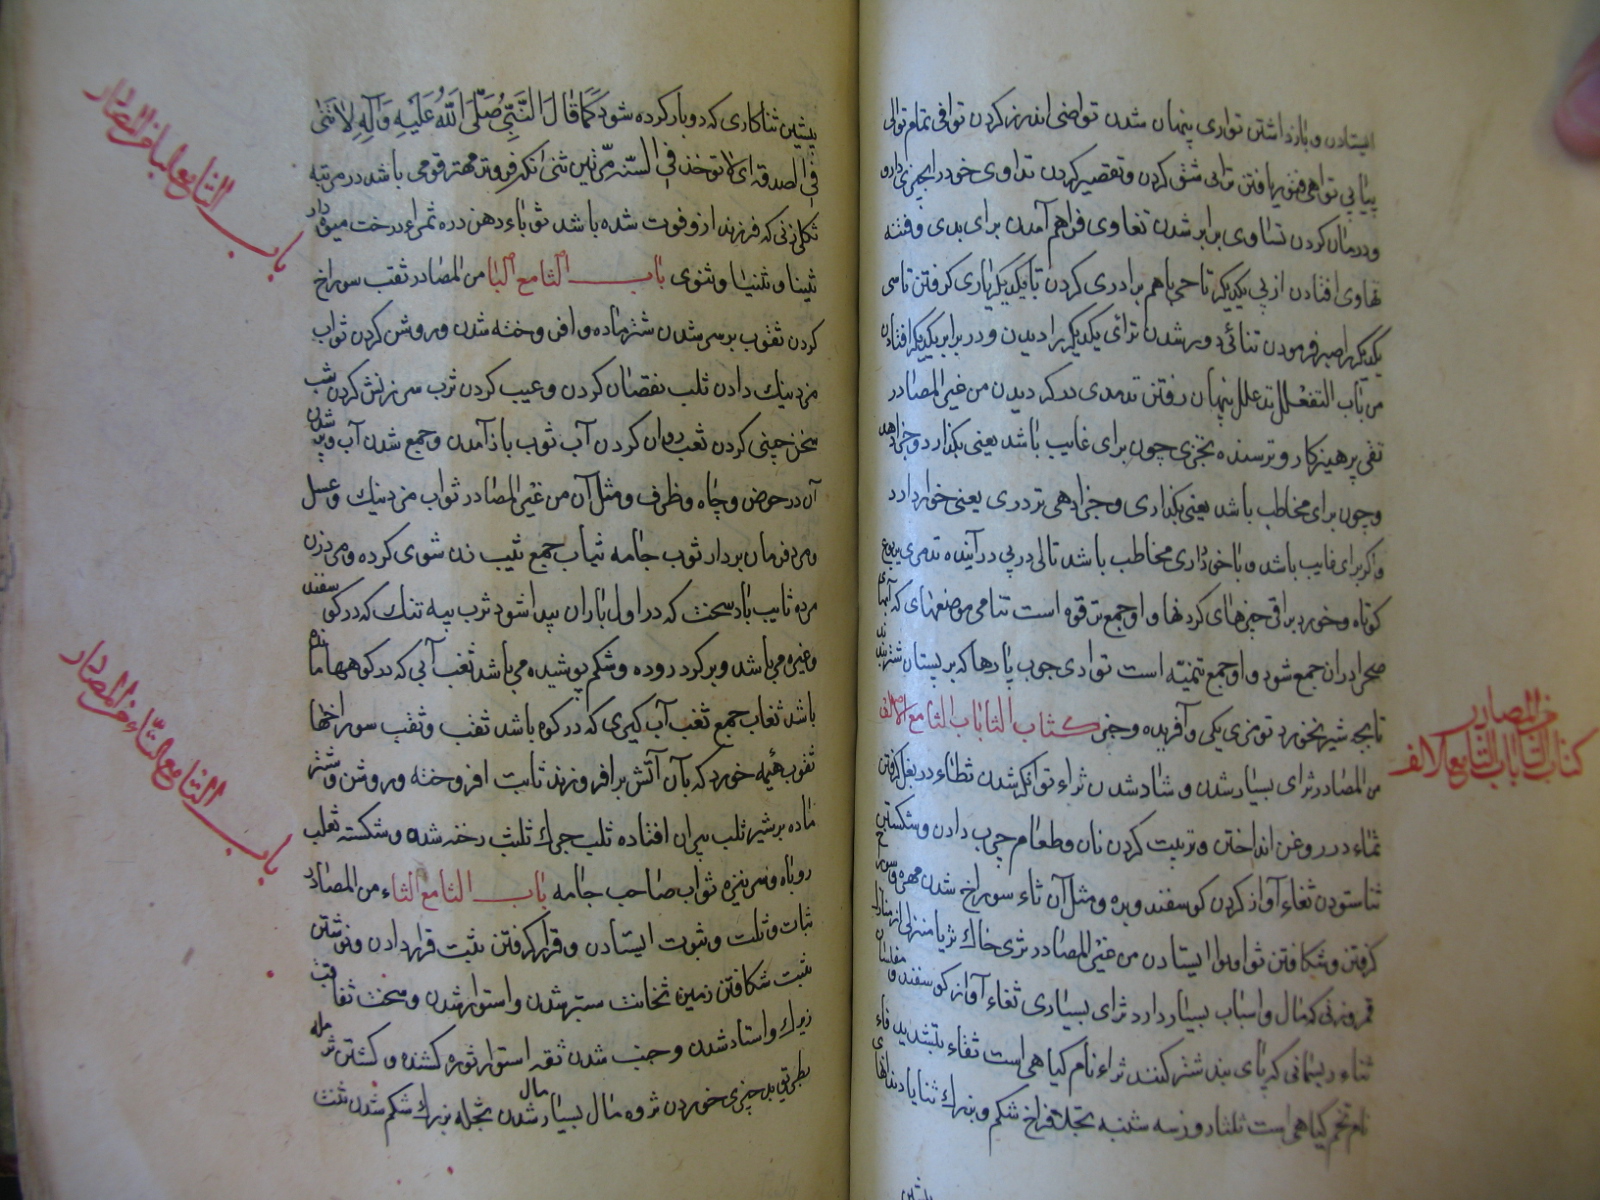 ایستادن و بازداشتن تواری پنهان شدن تواصی اندرز کردن توافی تمام توالی
پیاپی تواهی فتور یافتن توانی سستی کردن و تقصیر کردن تداوی خود را بچیزی دارو
و درمان کردن تساوی برابر شدن تغاوی فراهم آمدن برای بدی و فتنه
تهاوی افتادن از پی یکدیگر تاخی باهم برادری کردن تایکدیگر یاری کرفتن تاسی
یکدیگر را صبر فرمودن تنائی دور شدن ترائی یکدیگر را دیدن و در برابر یکدیگر افتادن
من باب التفعلل پنهان رفتن دیدن من غیر المصادر
تقی پرهیزکار و ترسنده تجزی چون برای غایب باشد یعنی بکذارد و جزا دهد
و چون برای مخاطب باشد یعنی بکذاری و جزا دهی تزدری یعنی خوار دارد
و اکر برای غایب باشد و یا خوار داری مخاطب باشد تالی در پی در آینده
کوتاه و خورد تراقی چنبرهای کردنها و او جمع ترقوه است تناهی موضعهای که آبهای
صحرا در ان جمع شود و او جمع تنهیه است توادی چوب پارها که بر پستان شتر بندند
تا بچه شیر نخورد توی مردی یکی و آفریده و جنی کتاب الثا باب الثا مع الالف
من المصادر ثرای بسیار شدن و شاد شدن ثراء توانکر شدن ثطاء در بغل کرفتن
ثماء در روغن انداختن و تربیت کردن نان و طعام چرب دادن و شکستن
ثنا ستودن ثغاء آواز کردن کوسفند و بره و مثل آن ثاء سوراخ شدن مهره و سوراخ
کرفتن و شکافتن ثوا و ایستادن من غیر المصادر ثری خاک ثریا منزلی از منازل
قمر و زنی که مال و اسباب بسیار دارد ثرای بسیاری ثغاء آواز کوسفند و
ثناء ریسمانی که پای بند شتر کنند ثراء نام کیاهی است ثفاء بتشدید فاء
نام تخم کیاهی است ثلثا روز سه شنبه ثجلا فراخ شکم و بزرک ثنایا دندانهای
پیشین
کتاب الثا باب الثا مع الالف
من المصادر
پیشین ثنا کاری که دوبار کرده شود کما قال النبی صلی الله علیه و آله لا ثنی
فی الصدقه ای لا توخذ فی السنه مرتین ثنی آنکه فروتر مهتر قومی باشد در مرتبه
ثکلی زنی که فرزند از و فوت شده باشد ثوباء دهن دره ثمراء درخت میوه دار
ثینا و ثنیا و ثنوی باب الثا مع البا من المصادر ثقب سوراخ
کردن ثقوب بر سر شدن شتر ماده و افروخته شدن و روشن کردن ثواب
مزد نیک دادن ثلب نقصان کردن و عیب کردن ثرب سرزنش کردن
سخن چینی کردن ثعب روان کردن آب ثوب باز آمدن و جمع شدن آب و پر شدن
آن در حوض و چاه و ظرف و مثل آن من غیر المصادر ثواب مزد نیک و عسل
و مرد فرمان بردار ثوب جامه ثیاب جمع ثیب زن شوی کرده و مرد زن
مرده ثایب باد سخت که در اول باران پیدا شود ثرب پیه تنک که در کوسفند
و غیره می باشد و بر کرد روده و شکم پوشیده می باشد ثغب آبی که در کوهها مانده
باشد ثعاب جمع ثغب آب کیری که در کوه باشد ثقب و ثقب سوراخها
ثقوب هیمه خورد که بآن آتش برافروزند ثاقب افروخته و روشن و شتر
ماده پر شیر ثلب پیر دندان افتاده ثلب چرک ثلب رخنه شده و شکسته ثعلب
روباه و سر نیزه ثواب صاحب جامه باب الثا مع التاء من المصادر
ثبات و ثبت و ثبوت ایستادن و قرار کرفتن ثبت قرار دادن و نوشتن
شکافتن زمین ثخانت ستبر شدن و استوار شدن و سخت ثقافت
زیرک و استاد شدن و شدن ثقه استوار ثوره کشنده و کشتن ثرمله
بطریق بد چیزی خوردن ثروه مال بسیار شدن مال ثجله بزرک شکم شدن
باب الثا مع الباء من المصادر
باب الثا مع التاء من المصادر